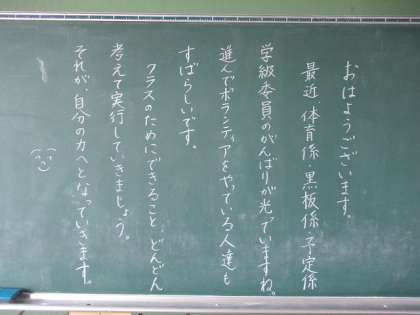 おはようございます。
最近、体育係・黒板係・予定係
学級委員のがんばりが光っていますね。
進んでボランティアをやっている人達も
すばらしいです。
クラスのためにできること、どんどん
考えて実行していきましょう。
それが、自分の力へとなっていきます。